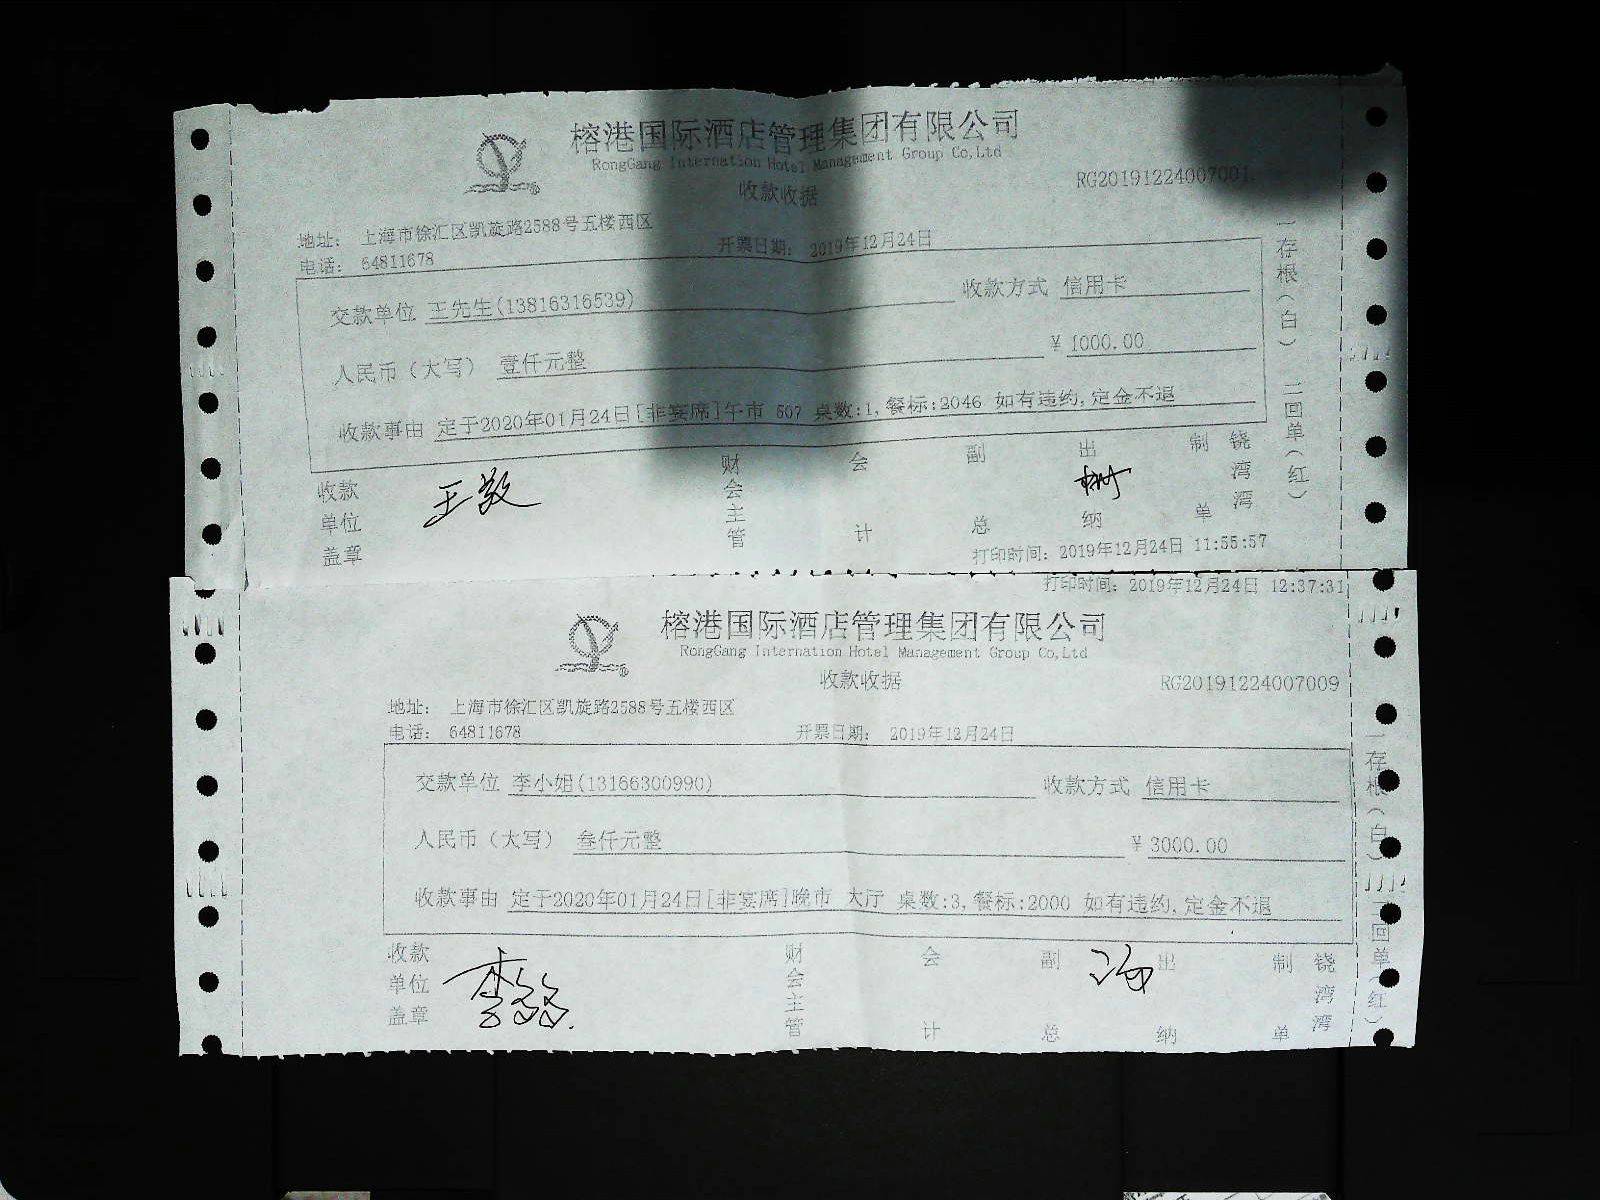 榕港国际酒店管理集团有限公司
RongGang Internation Hotel Management Group Co,Ltd
收款收据
RG20191224007001
地址： 上海市徐汇区凯旋路2588号五楼西区
电话： 64811678
开票日期： 2019年12月24日
交款单位 王先生(13816316539)
收款方式 信用卡
人民币（大写） 壹仟元整
¥ 1000.00
收款事由 定于2020年01月24日[非宴席]午市 507 桌数:1,餐标:2046 如有违约,定金不退
收款单位盖章
财会主管
会计
副总
出纳
制单
铙湾湾
一存根（白） 二回单（红）
打印时间：2019年12月24日 11:55:57
打印时间：2019年12月24日 12:37:31
榕港国际酒店管理集团有限公司
RongGang Internation Hotel Management Group Co,Ltd
收款收据
RG20191224007009
地址： 上海市徐汇区凯旋路2588号五楼西区
电话： 64811678
开票日期： 2019年12月24日
交款单位 李小姐(13166300990)
收款方式 信用卡
人民币（大写） 叁仟元整
¥ 3000.00
收款事由 定于2020年01月24日[非宴席]晚市 大厅 桌数:3,餐标:2000 如有违约,定金不退
收款单位盖章
财会主管
会计
副总
出纳
制单
铙湾湾
一存根（白） 二回单（红）